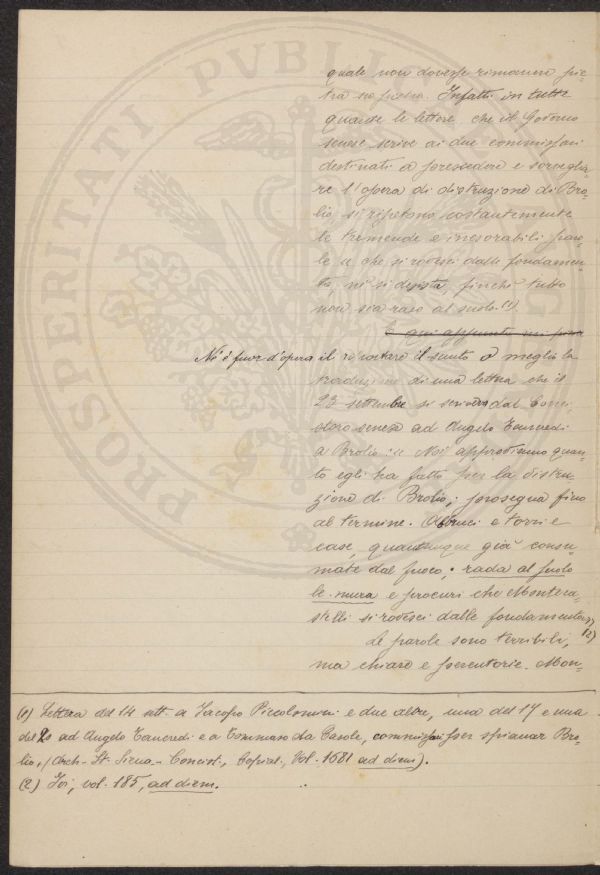 PROSPERITATI PVBLICAE
quale non dovesse rimanere pie-
tra su pietra. Infatti in tutte
quante le lettere che il Governo
senese scrive ai due commissari
destinati a presiedere e sorveglia-
re l'opera di distruzione di Bro-
lio, si ripetono costantemente
le tremende e inesorabili paro-
le « che si rovesci dalle fondamen-
ta, nè si desista, finchè tutto
non sia raso al suolo. (1)
E qui appunto mi pare
Nè è fuor d'opera il riportare il sunto o meglio la
traduzione di una lettera che il
23 settembre si scrive dal Conci-
storo senese ad Angelo Tancredi
a Brolio: « Noi approviamo quan-
to egli ha fatto per la distru-
zione di Brolio; prosegua fino
al termine. Abbruci e torri e
case, quantunque già consu-
mate dal fuoco; rada al suolo
le mura e procuri che Monteca-
stelli si rovesci dalle fondamenta» (2)
Le parole sono terribili,
ma chiare e perentorie. Mon-
(1) Lettera del 14 sett. a Jacopo Piccolomini e due altre, una del 17 e una
del ad Angelo Tancredi e a Tommaso da Casole, commissari per spianar Bro-
lio, (Arch. St. Siena - Concist., Copial., Vol. 1681 ad diem).
(2) Ivi, vol. 185, ad diem.